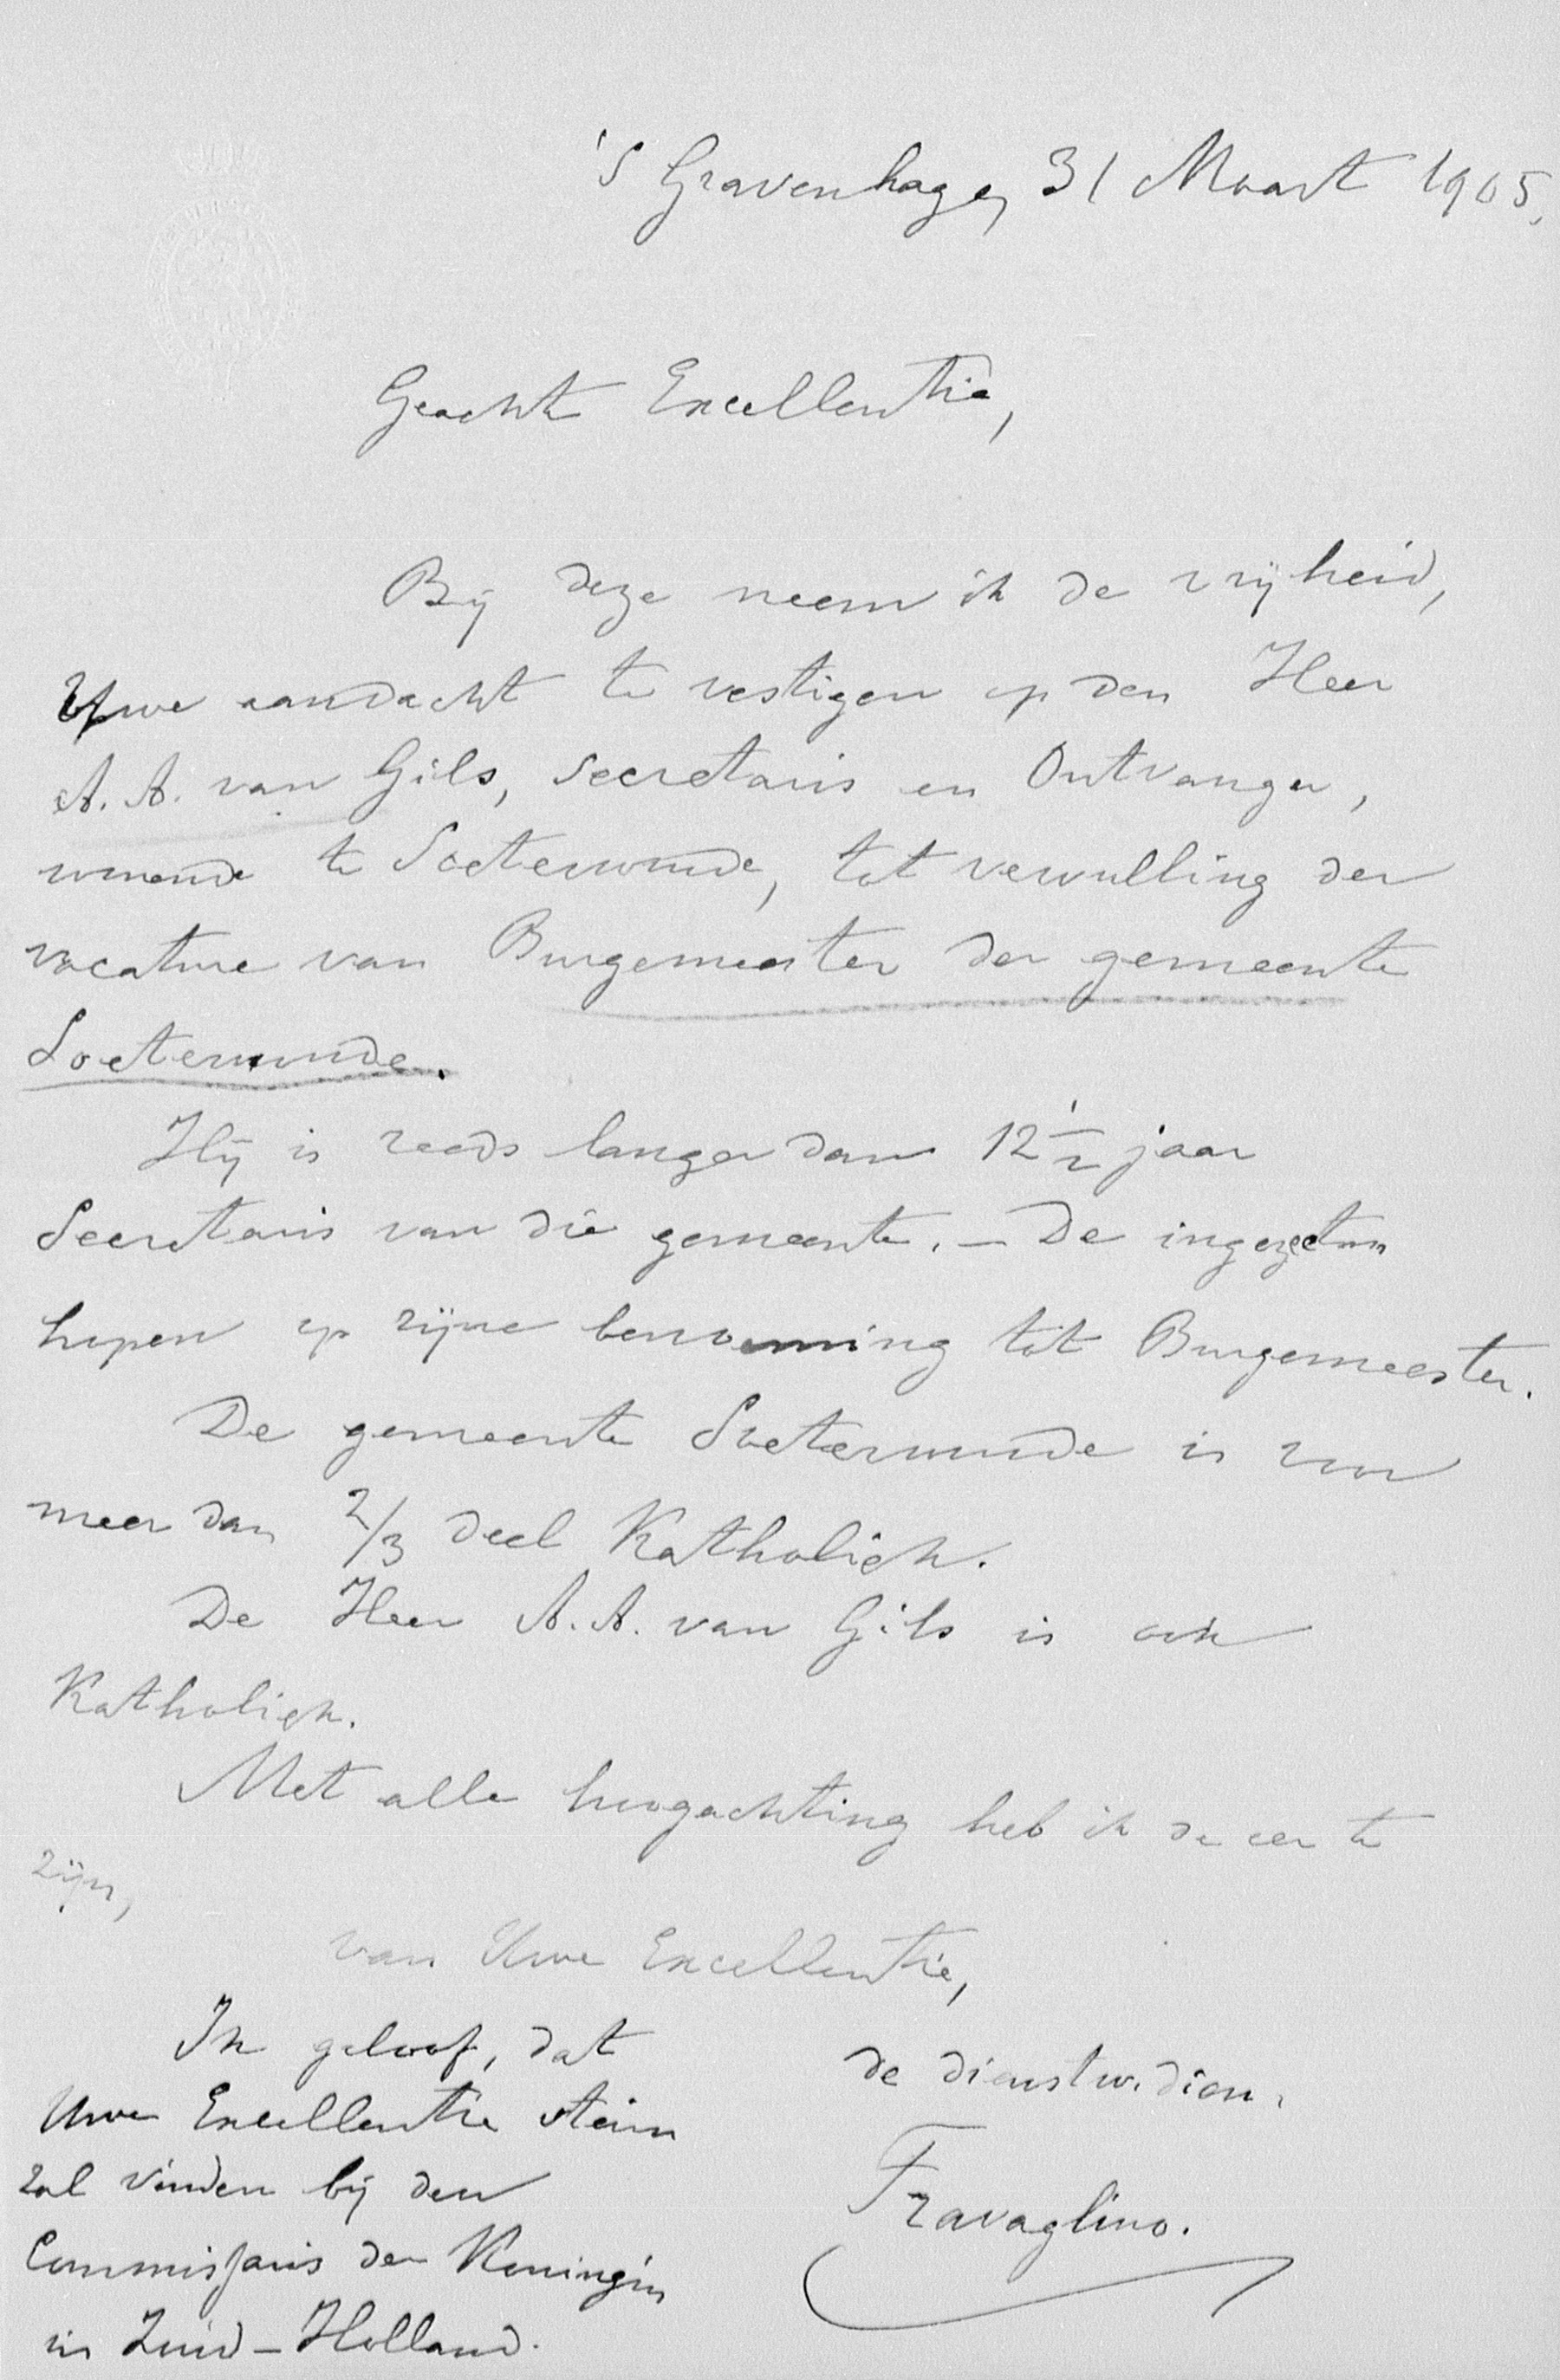 's Gravenhage, 31 Maart 1905.
Geachte Excellentie,
Bij deze neem ik de vrijheid,
Uwe aandacht te vestigen op den Heer
A. A. van Gils, Secretaris en Ontvanger,
wonende te Soeterwoude, tot vervulling der
vacature van Burgemeester der gemeente
Soeterwoude.
Hij is reeds langer dan 12 1/2 jaar
Secretaris van die gemeente. — De ingezetenen
hopen op zijne benoeming tot Burgemeester.
De gemeente Soeterwoude is voor
meer dan 2/3 deel Katholiek.
De Heer A. A. van Gils is ook
Katholiek.
Met alle hoogachting heb ik de eer te
zijn,
van Uwe Excellentie,
de dienstw. dien.
Travaglino.
Ik geloof, dat
Uwe Excellentie steun
zal vinden bij den
Commissaris der Koningin
in Zuid-Holland.